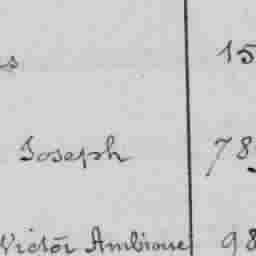 s 15
Joseph 78
Victor Ambroise 98